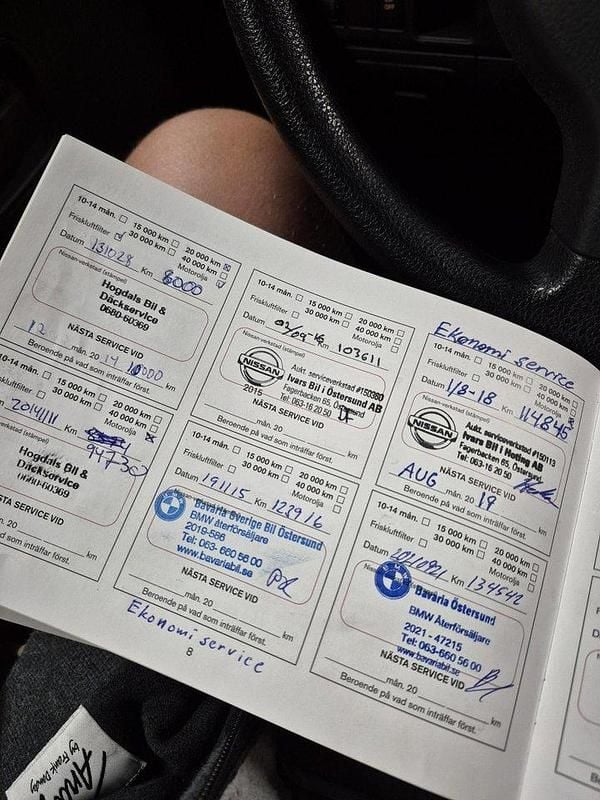 10-14 mån. 15 000 km 20 000 km
Friskluftfilter 30 000 km 40 000 km
Datum 131028 Km 8000 Motorolja
Nissan-verkstad (stämpel)
Hogdals Bil &
Däckservice
0680-60369
NÄSTA SERVICE VID
12 mån. 20 14 km
Beroende på vad som inträffar först.
10-14 mån. 15 000 km 20 000 km
30 000 km 40 000 km
2014/11 Km Motorolja
94730
Nissan-verkstad (stämpel)
Hogdals Bil &
Däckservice
0680-60369
NÄSTA SERVICE VID
mån. 20 km
Beroende på vad som inträffar först.
10-14 mån. 15 000 km 20 000 km
Friskluftfilter 30 000 km 40 000 km
Datum Km 103611 Motorolja
Nissan-verkstad (stämpel)
NISSAN
Aukt. serviceverkstad #150360
Ivars Bil i Östersund AB
Fagerbacken 65, Östersund
Tel: 063-16 20 50
2015
NÄSTA SERVICE VID
mån. 20 km
Beroende på vad som inträffar först.
10-14 mån. 15 000 km 20 000 km
Friskluftfilter 30 000 km 40 000 km
Datum 191115 Km 122916 Motorolja
Nissan-verkstad
Bavaria Sverige Bil Östersund
BMW återförsäljare
2019-586
Tel: 063-660 56 00
www.bavariabil.se
NÄSTA SERVICE VID
mån. 20 km
Beroende på vad som inträffar först.
Ekonomi service
8
Ekonomi service
10-14 mån. 15 000 km 20 000 km
Friskluftfilter 30 000 km 40 000 km
Datum 1/8-18 Km 114845 Motorolja
Nissan-verkstad (stämpel)
NISSAN
Aukt. serviceverkstad #150113
Ivars Bil i Hoting AB
Fagerbacken 65, Östersund
Tel: 063-16 20 50
NÄSTA SERVICE VID
AUG mån. 20 19 km
Beroende på vad som inträffar först.
10-14 mån. 15 000 km 20 000 km
Friskluftfilter 30 000 km 40 000 km
Datum Km 134542 Motorolja
Bavaria Östersund
BMW Återförsäljare
2021 - 47215
Tel: 063-660 56 00
www.bavariabil.se
NÄSTA SERVICE VID
mån. 20 km
Beroende på vad som inträffar först.
by Frank Dandy